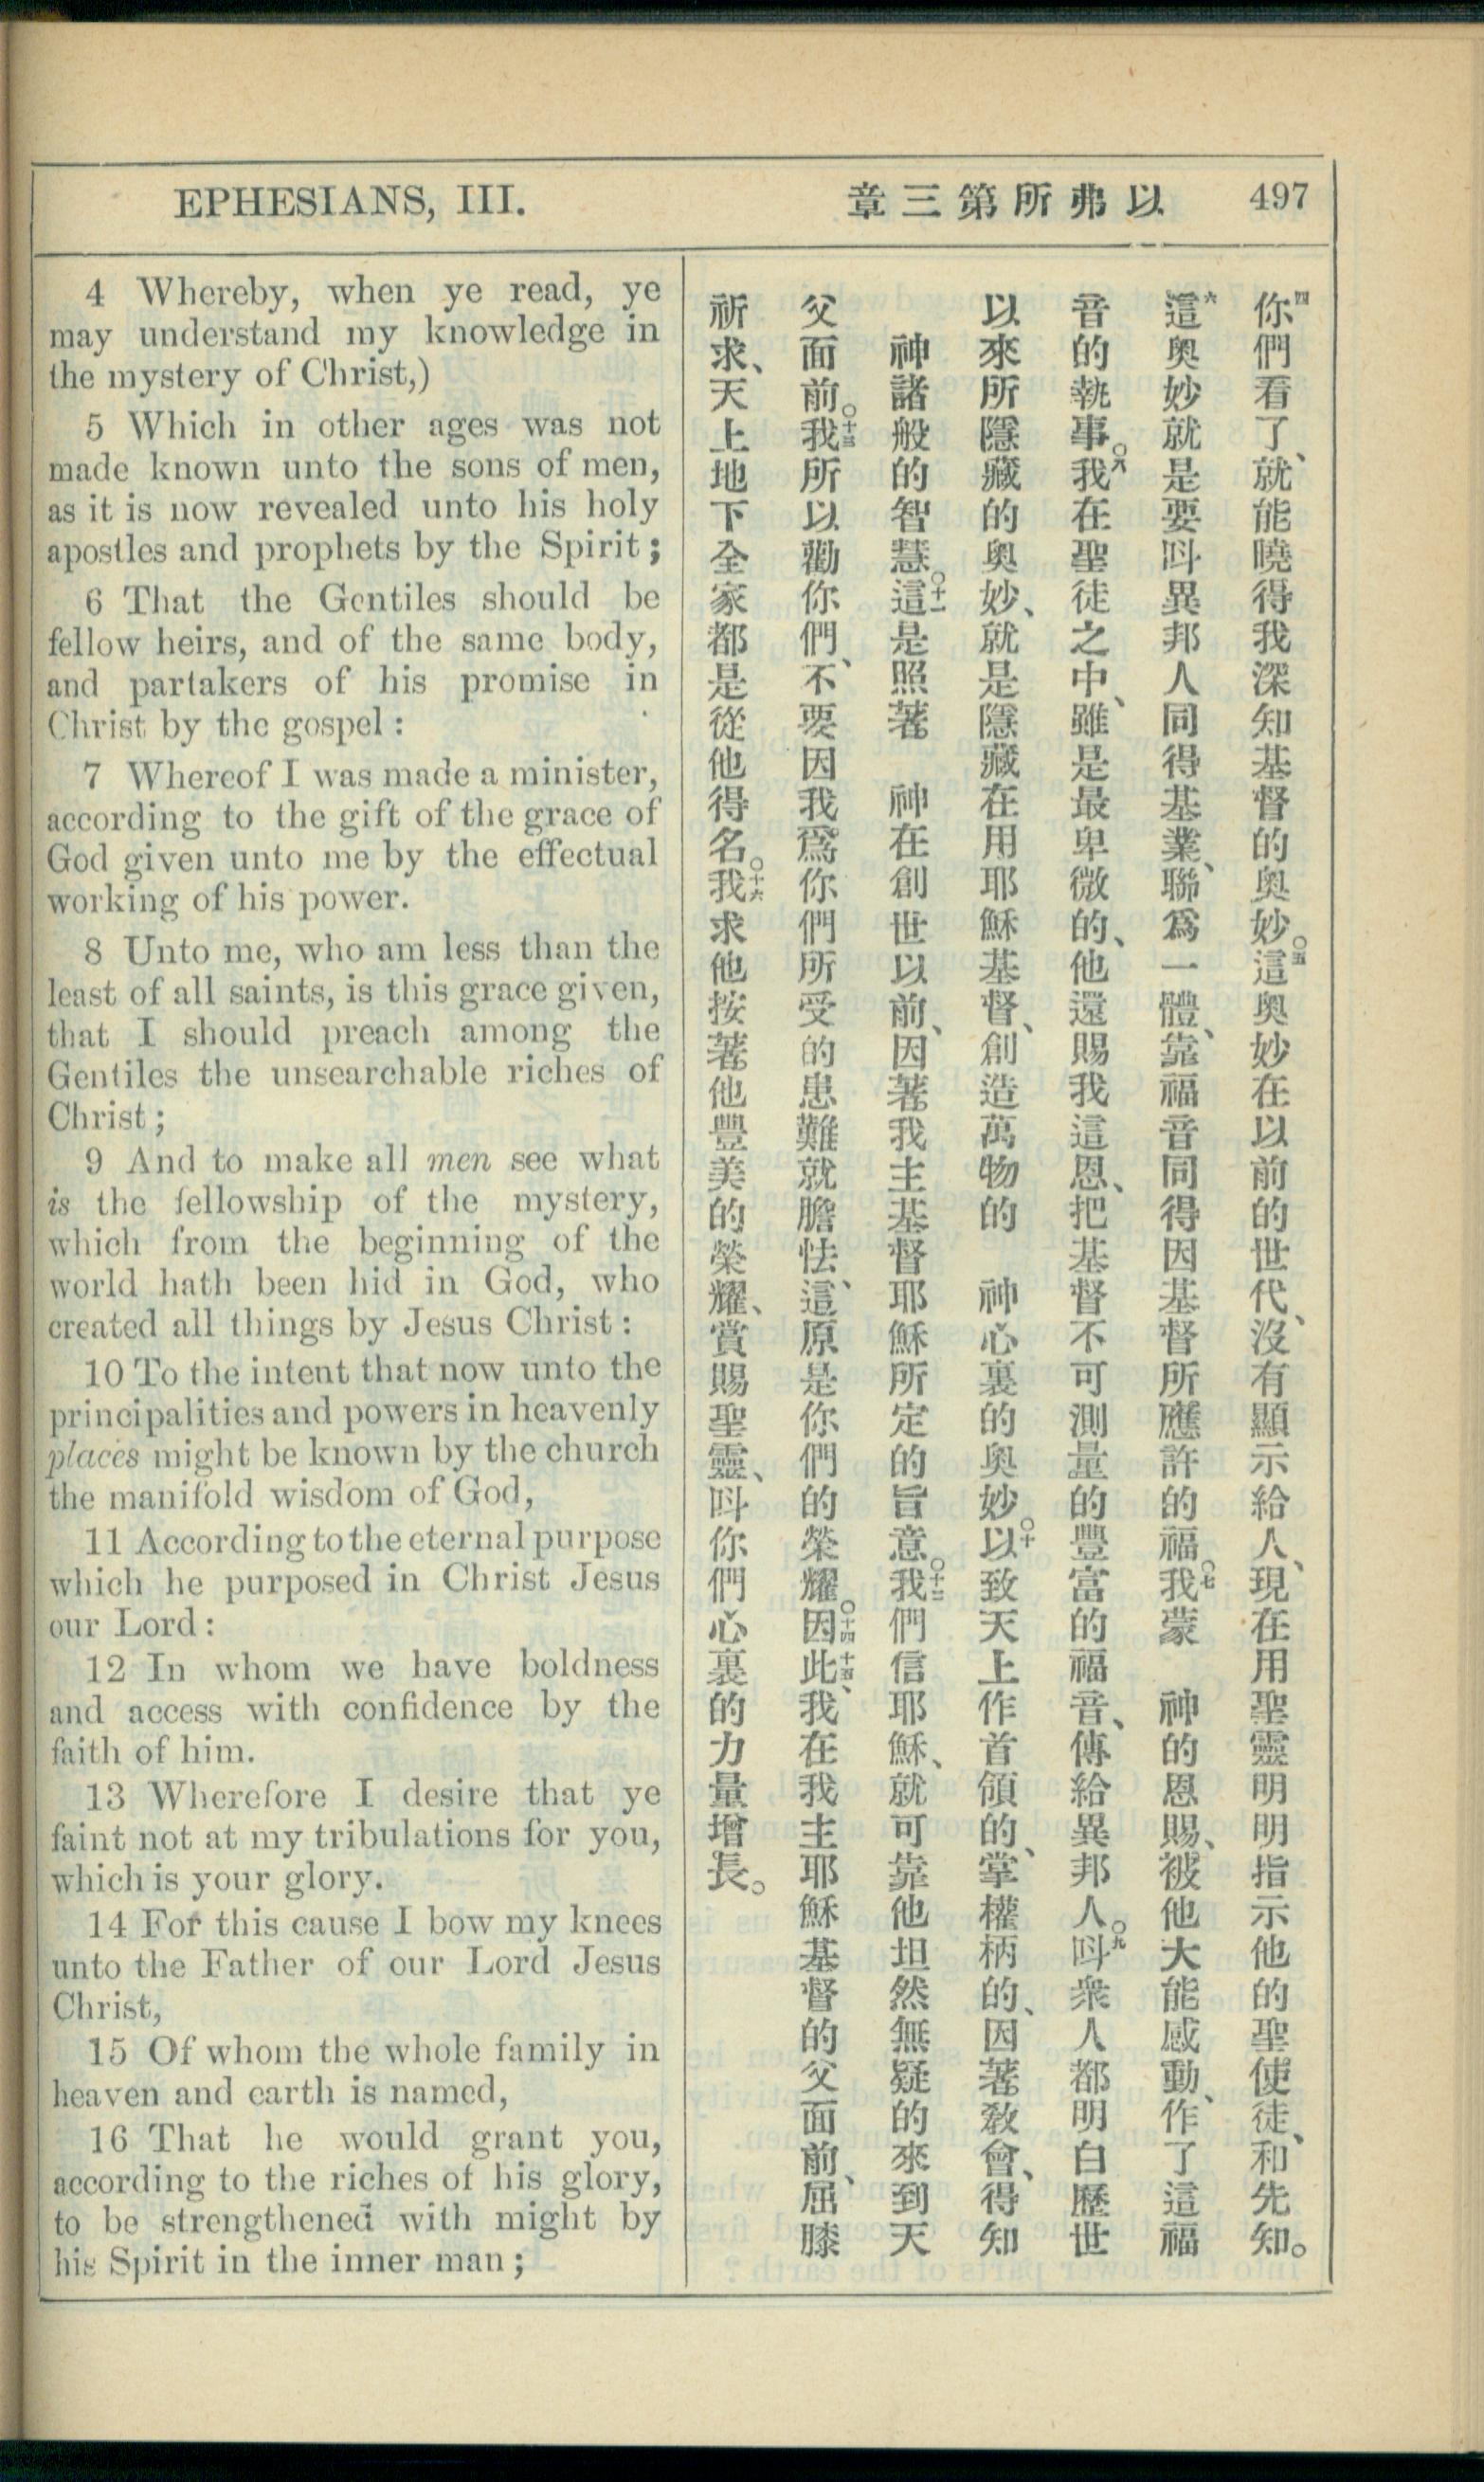 EPHESIANS, III.
以弗所第三章
497
4 Whereby, when ye read, ye
may understand my knowledge in
the mystery of Christ,)
5 Which in other ages was not
made known unto the sons of men,
as it is now revealed unto his holy
apostles and prophets by the Spirit;
6 That the Gentiles should be
fellow heirs, and of the same body,
and partakers of his promise in
Christ by the gospel:
7 Whereof I was made a minister,
according to the gift of the grace of
God given unto me by the effectual
working of his power.
8 Unto me, who am less than the
least of all saints, is this grace given,
that I should preach among the
Gentiles the unsearchable riches of
Christ;
9 And to make all men see what
is the fellowship of the mystery,
which from the beginning of the
world hath been hid in God, who
created all things by Jesus Christ:
10 To the intent that now unto the
principalities and powers in heavenly
places might be known by the church
the manifold wisdom of God,
11 According to the eternal purpose
which he purposed in Christ Jesus
our Lord:
12 In whom we have boldness
and access with confidence by the
faith of him.
13 Wherefore I desire that ye
faint not at my tribulations for you,
which is your glory.
14 For this cause I bow my knees
unto the Father of our Lord Jesus
Christ,
15 Of whom the whole family in
heaven and earth is named,
16 That he would grant you,
according to the riches of his glory,
to be strengthened with might by
his Spirit in the inner man;
四你們看了、就能曉得我深知基督的奧妙。○五這奧妙在以前的世代、沒有顯示給人、現在用聖靈明明指示他的聖使徒、和先知。
六這奧妙就是要呌異邦人同得基業、聯爲一體、靠福音同得因基督所應許的福○七我蒙 神的恩賜、被他大能感動、作了這福
音的執事。○八我在聖徒之中、雖是最卑微的、他還賜我這恩、把基督不可測量的豐富的福音、傳給異邦人。○九呌衆人都明白歷世
以來所隱藏的奧妙、就是隱藏在用耶穌基督、創造萬物的 神心裏的奧妙。○十以致天上作首領的、掌權柄的、因著敎會、得知
神諸般的智慧。○十一這是照著 神在創世以前、因著我主基督耶穌所定的旨意。○十二我們信耶穌、就可靠他坦然無疑的來到天
父面前。○十三我所以勸你們、不要因我爲你們所受的患難就膽怯、這原是你們的榮耀。○十四因此、十五我在我主耶穌基督的父面前、屈膝
祈求、天上地下全家都是從他得名。○十六我求他按著他豐美的榮耀、賞賜聖靈、呌你們心裏的力量增長。